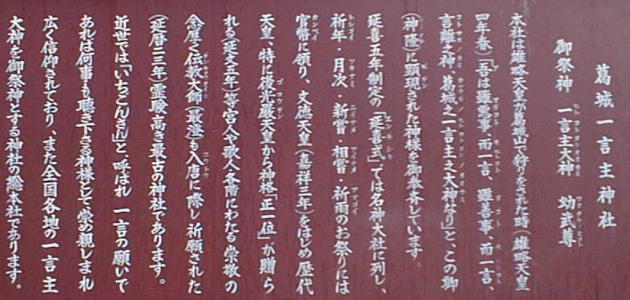 葛城一言主神社
御祭神　一言主大神　幼武尊
本社は雄略天皇が葛城山で狩りをされた時（雄略天皇
四年春）「吾は雖悪事而一言、雖善事而一言、
言離之神、葛城之一言主之大神なり」と、この御
（神降）に顕現された神様を御奉斎しています。
延喜五年制定の「延喜式」では名神大社に列し、
祈年・月次・新嘗・相嘗・祈雨のお祭りには
官幣に預り、文徳天皇（嘉祥三年）をはじめ歴代
天皇、特に後光厳天皇から神格「正一位」が贈ら
れる（延文元年）等宮人や歌人・各階にわたる崇敬の
念厚く伝教大師（最澄）も入唐に際し祈願された
（延暦二三年）霊験高き最古の神社であります。
近世では「いちごんさん」と、呼ばれ　一言の願いで
あれば何事も聴き下さる神様として崇め親しまれ
広く信仰されており、また全国各地の一言主
大神を御祭神とする神社の總本社であります。